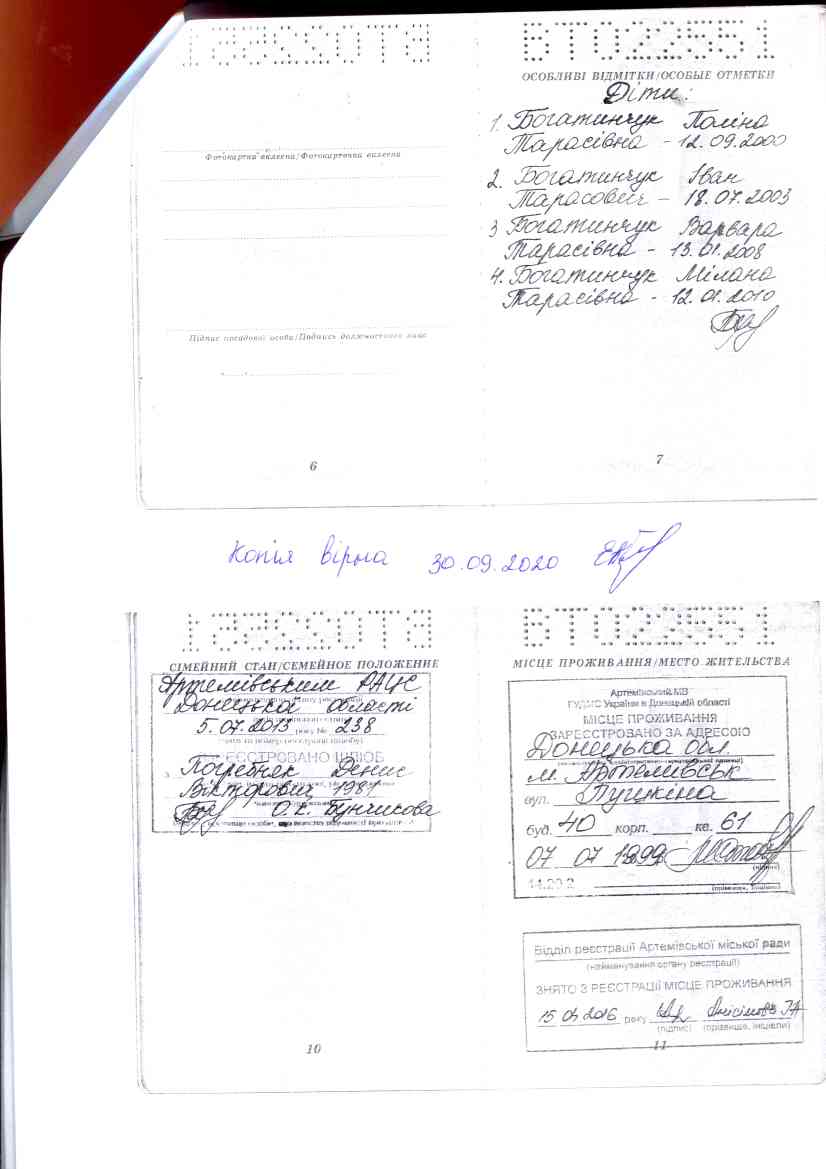 ВТ022551
ВТ022551
Фотокартка вклеєна/Фотокарточка вклеена
Підпис посадової особи/Подпись должностного лица
6
ОСОБЛИВІ ВІДМІТКИ/ОСОБЫЕ ОТМЕТКИ
Діти:
1. Богатинчук Поліна
Тарасівна - 12.09.2000
2. Богатинчук Іван
Тарасович - 18.07.2003
3 Богатинчук Варвара
Тарасівна - 13.01.2008
4. Богатинчук Мілана
Тарасівна - 12.01.2010
7
Копія вірна 30.09.2020
ВТ022551
ВТ022551
СІМЕЙНИЙ СТАН/СЕМЕЙНОЕ ПОЛОЖЕНИЕ
Артемівським РАЦС
Донецької області
5.07.2013 року № 238
ЗАРЕЄСТРОВАНО ШЛЮБ
з Погребняк Денис
Вікторович 1981
О.К. Бунчикова
10
МІСЦЕ ПРОЖИВАННЯ/МЕСТО ЖИТЕЛЬСТВА
Артемівський МВ
ГУДМС України в Донецькій області
МІСЦЕ ПРОЖИВАННЯ
ЗАРЕЄСТРОВАНО ЗА АДРЕСОЮ
Донецька обл.
м. Артемівськ
вул. Пушкіна
буд. 40 корп. кв. 61
07 07 1999
(підпис)
(прізвище, ініціали)
Відділ реєстрації Артемівської міської ради
(найменування органу реєстрації)
ЗНЯТО З РЕЄСТРАЦІЇ МІСЦЕ ПРОЖИВАННЯ
15 03 2016 року Анісімова
(підпис) (прізвище, ініціали)
11